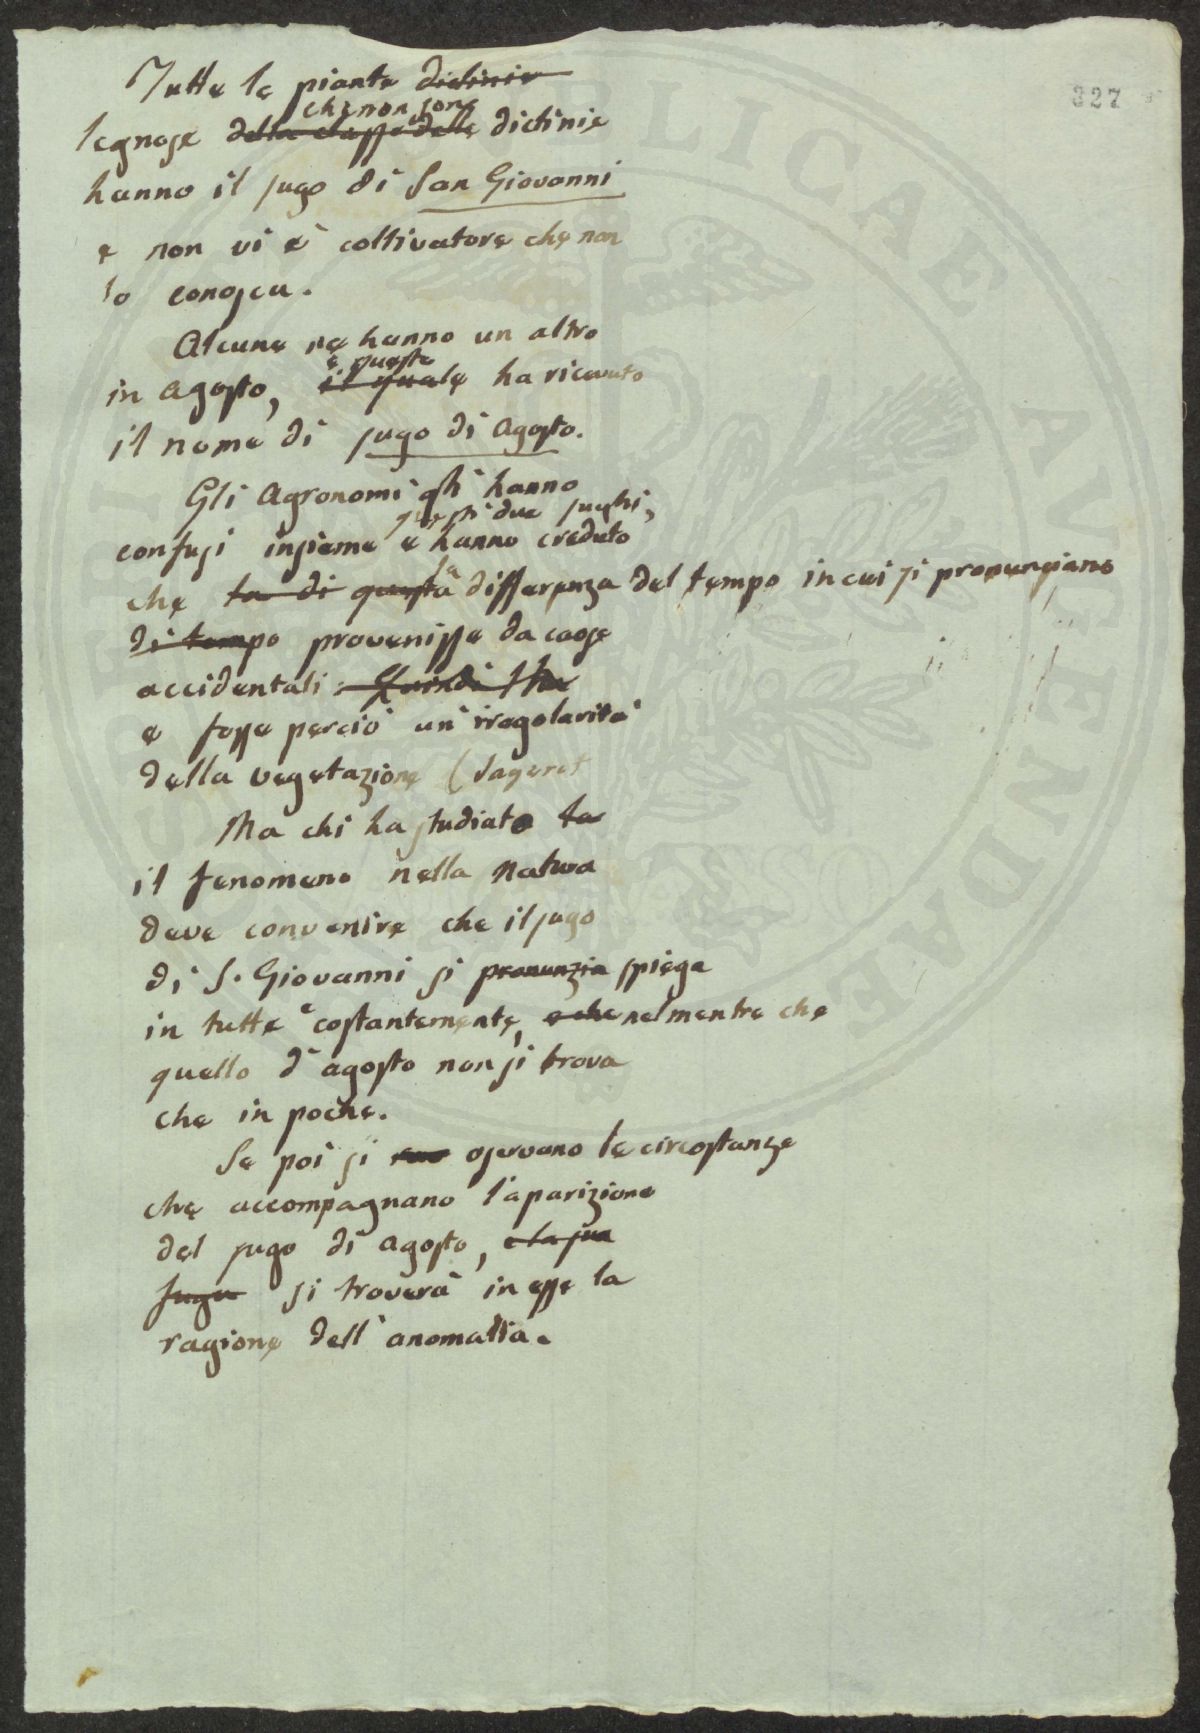 327
Tutte le piante diclinie
che non sono
legnose della classe delle diclinie
hanno il sugo di San Giovanni
e non vi è coltivatore che non
lo conosca.
Alcune ne hanno un altro
e questo
in Agosto, il quale ha ricevuto
il nome di sugo di Agosto.
Gli Agronomi gli hanno
questi due sughi,
confusi insieme e hanno creduto
la
che la di questa differenza del tempo in cui si pronunziano
di tempo provenisse da cause
accidentali: Quindi
e fosse perciò un'irregolarità
della vegetazione (Sageret
Ma chi ha studiato la
il fenomeno nella natura
deve convenire che il sugo
di S. Giovanni si pronunzia spiega
in tutte e costantemente, e che nel mentre che
quello d'agosto non si trova
che in poche.
Se poi si osservano le circostanze
che accompagnano l'aparizione
del sugo di agosto, e la sua
fuga si troverà in esse la
ragione dell'anomalia.
REIPUBLICAE AVGENDAE